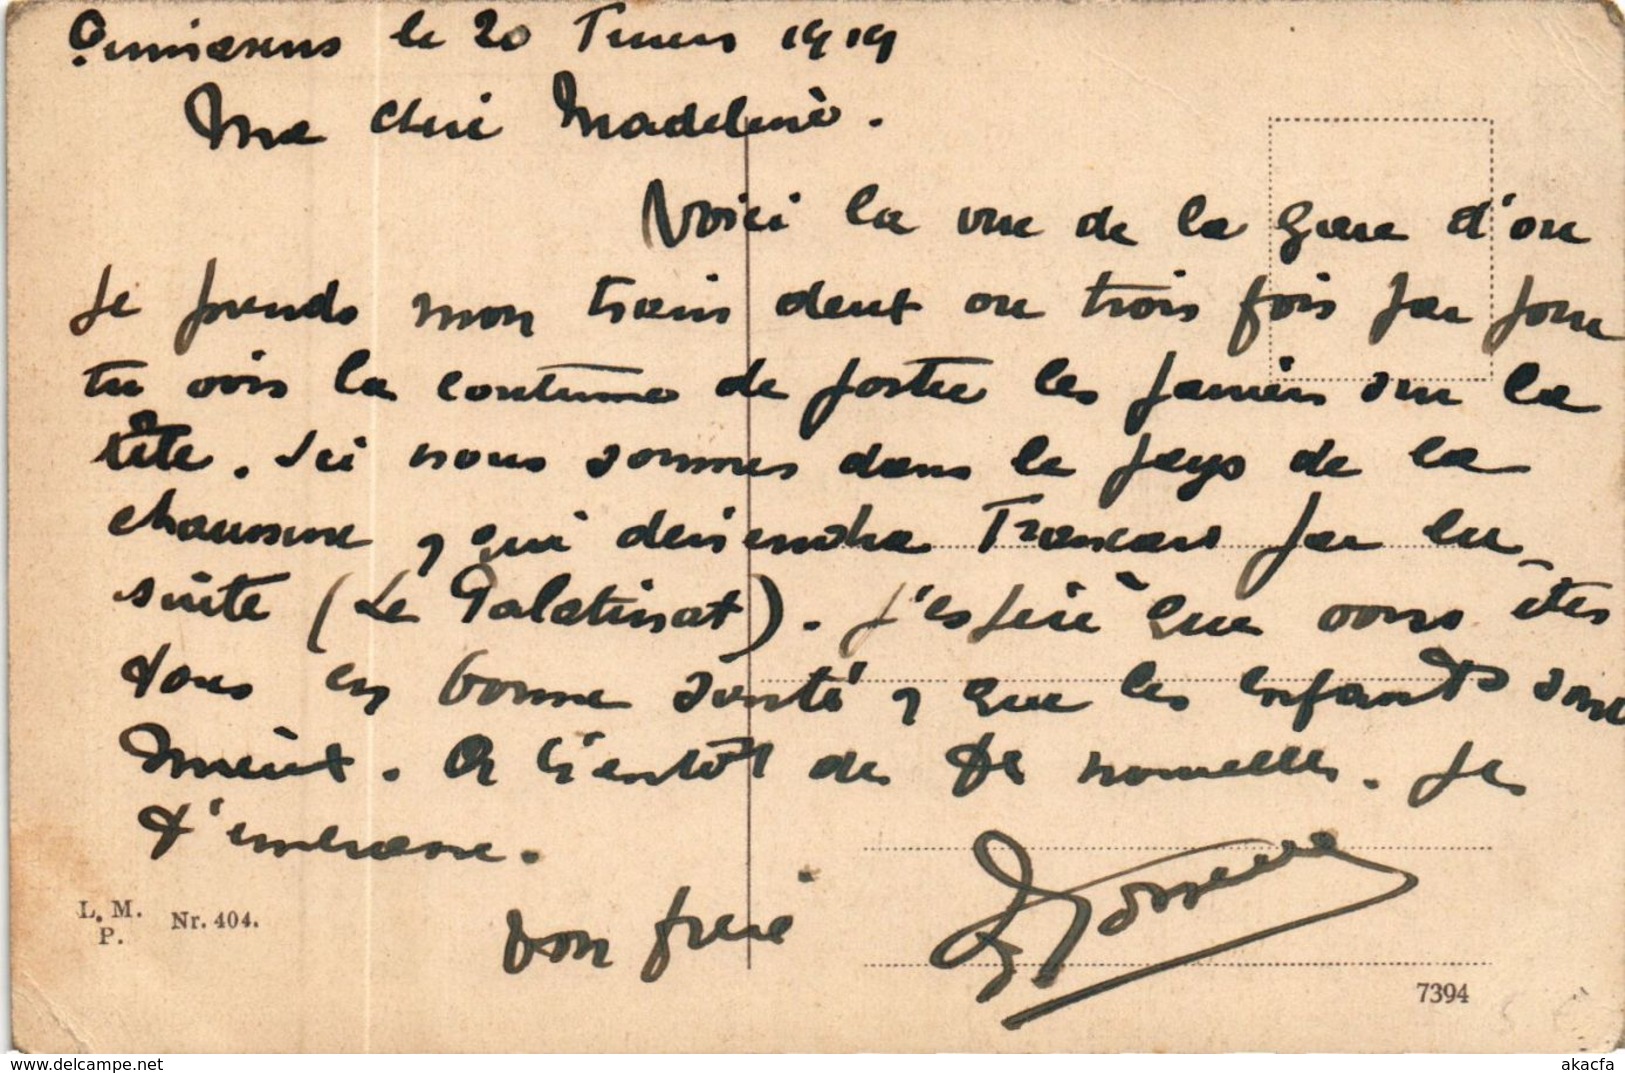 Pirmasens le 20 Février 1919
Ma chère Madeleine.
Voici la vue de la gare d'ou
je prends mon train deux ou trois fois par jour
tu vois la coutume de porter les paniers sur la
tête. Ici nous sommes dans le pays de la
chaussure, qui deviendra Français par la
suite (Le Palatinat). J'espère que vous êtes
tous en bonne santé, que les enfants sont
mieux. A bientôt de tes nouvelles. Je
t'embrasse.
ton frère
L. M.
P.
Nr. 404.
7394
www.delcampe.net
akacfa